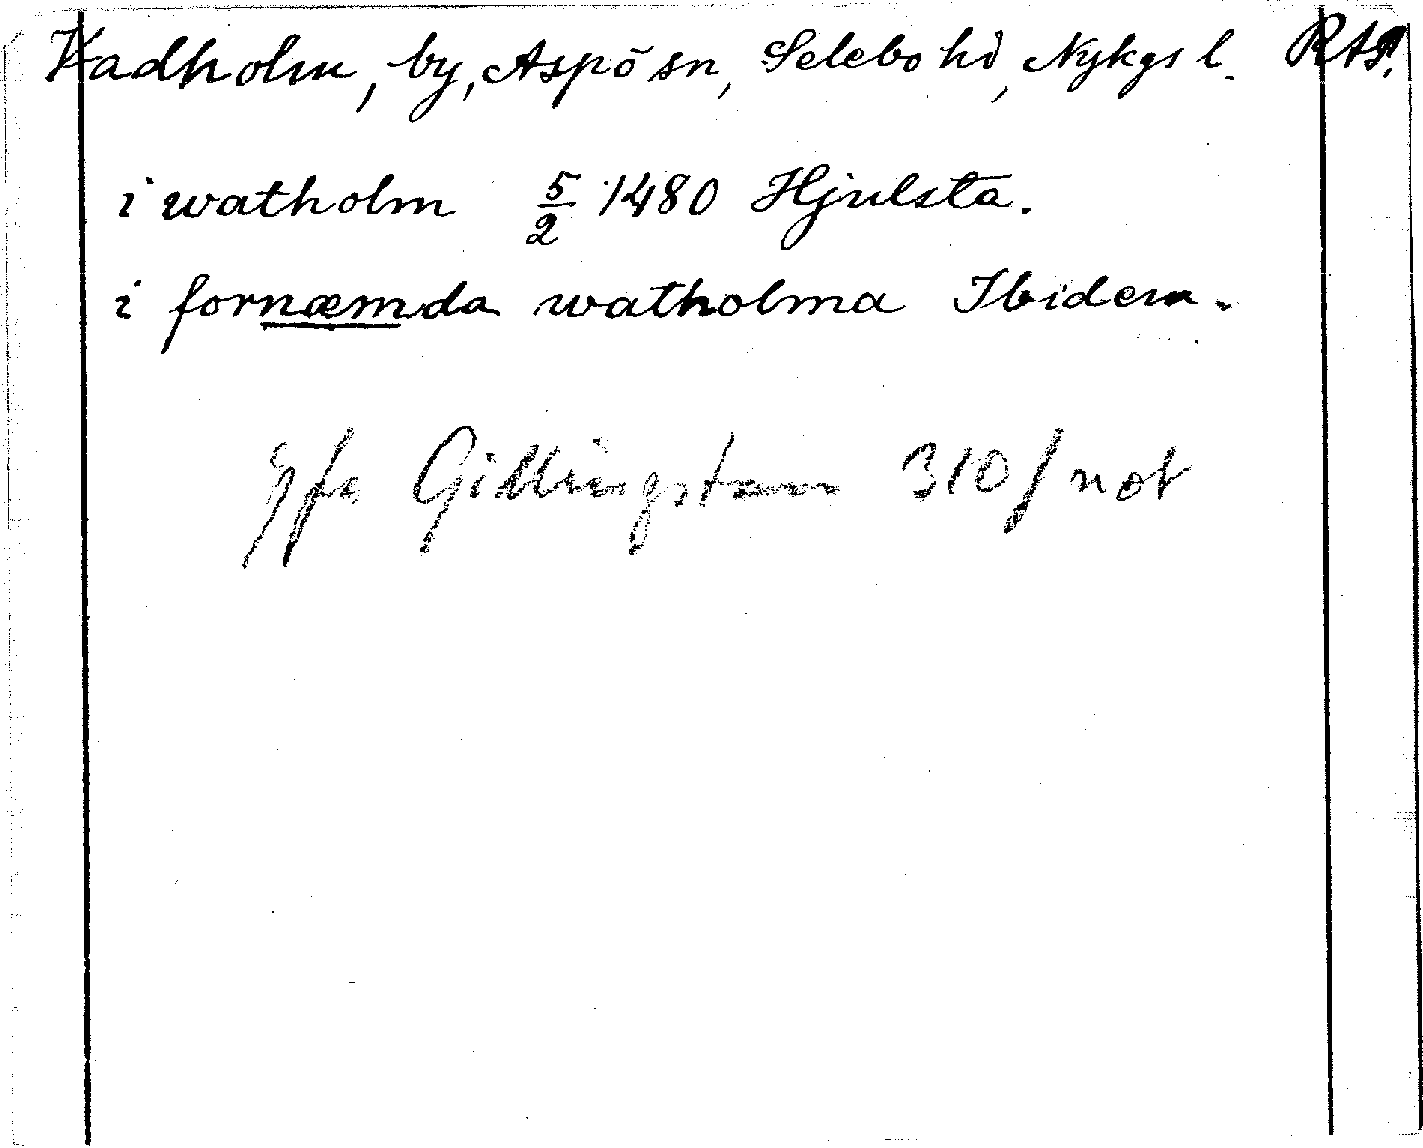 Vadholm, by, Aspö sn, Selebo hd, Nykgs l. RAp.
i watholm 5/2 1480 Hjulsta.
i fornæmda watholma Ibidem.
Jfr Gillingstam 310 f not